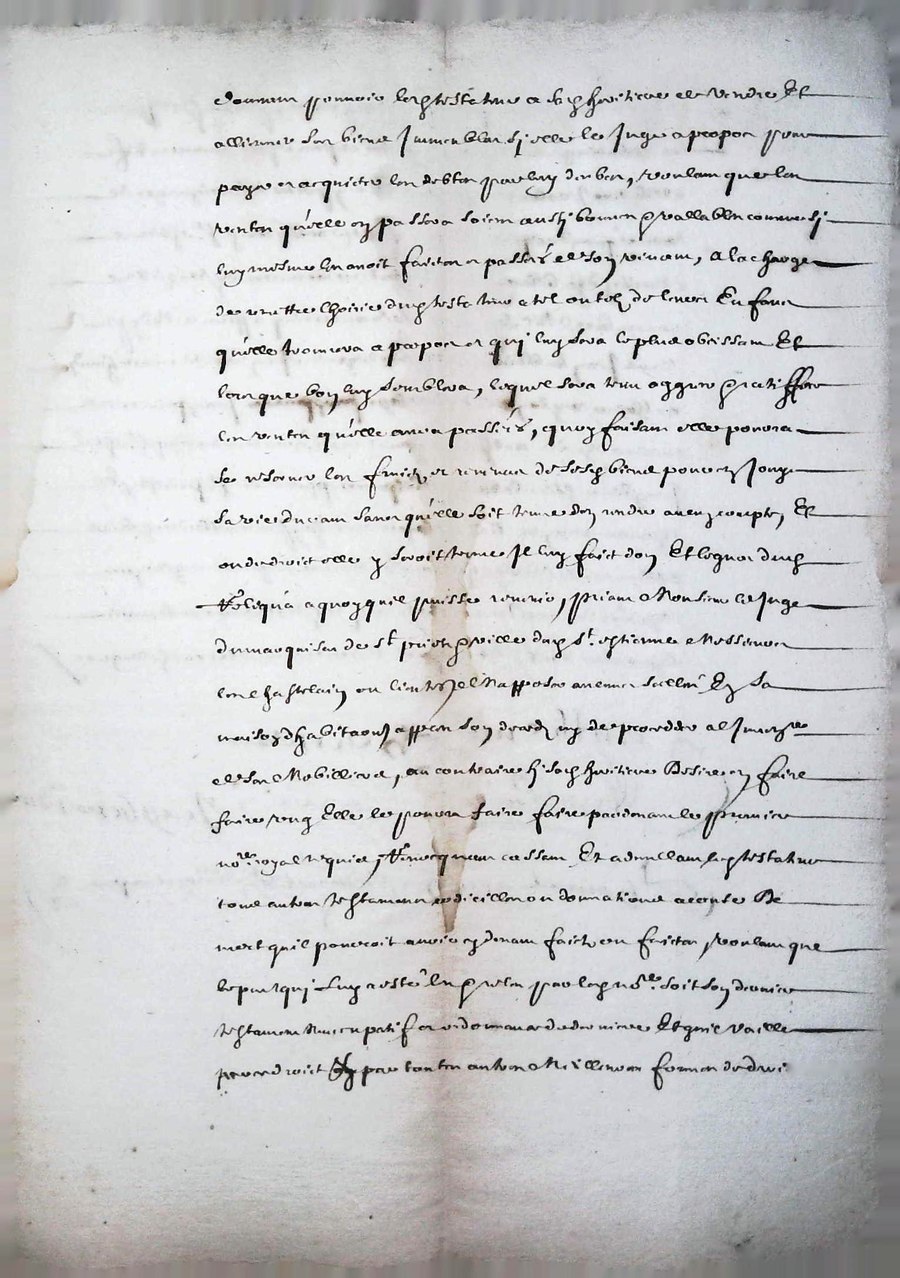 donnant pouvoir led testateur a sad heritiere de vendre Et
alliener ses biens Immeubles si elle le Juge a propos pour
payer et acquicter les debtes par luy deubes, voulant que les
ventes qu'elle en passera soient aussi bonnes & vallables comme si
luy mesme les avoit faictes et passés de son vivant, a la charge
de remettre lhoirie dud testateur a tel ou telz de leurs Enfans
qu'elle treuvera a propos et qui luy sera le plus obeissant Et
lors que bon luy semblera, lequel sera tenu aggreer & ratiffier
les ventes qu'elle aura passés, quoy faisant elle pourra
se reserver les fruictz et revenus de sesd biens pour en Jouyr
sa vie durant sans qu'elle soit tenue den rendre aucun compte, Et
ou de droict elle y seroit tenue Il luy faict don Et legue dud
Reliqua a quoy quil puisse revenir, priant Monsieur le Juge
du marquisat de St priest & ville dud St estienne Messieurs
les Chastelain ou Lieutent el Napposer aucuns scellés En sa
maison dhabitaon appres son deces ny de proceder a lInvre
de ses Mobilliers, au contraire si sad heritiere Desire en faire
faire ung Elle le pourra faire faire pardevant le premier
nore royal requis, Revocquant cassant Et adnullant led testateur
tous autres testamens codicilles ou donnations a cause De
mort quil pourroit avoir cy devant faictz ou faictes, voulant que
le put qui luy a esté leu & releu par led nore soit son dernier
testament nuncupatif et ordonnance de derniere Et quil vaille
par ce droict par toutes autres Meilleures formes de droi